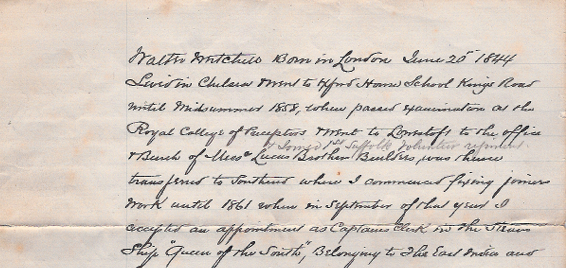 Walter Mitchell Born in London June 20th 1844
Livd in Chelsea & Went to Oxford House School Kings Road
until Midsummer 1858, when passed examination at the
Royal College of Preceptors & Went to Lowestoft to the office
& Joined 1st Suffolk Volunteer regiment.
& Bench of Messrs Lucas Brothers Builders, was thence
transferred to Southend where I commenced fixing joiners
work until 1861 when in September of that year I
accepted an appointment as Captains Clerk in the Steam
Ship "Queen of the South", Belonging to The East India and